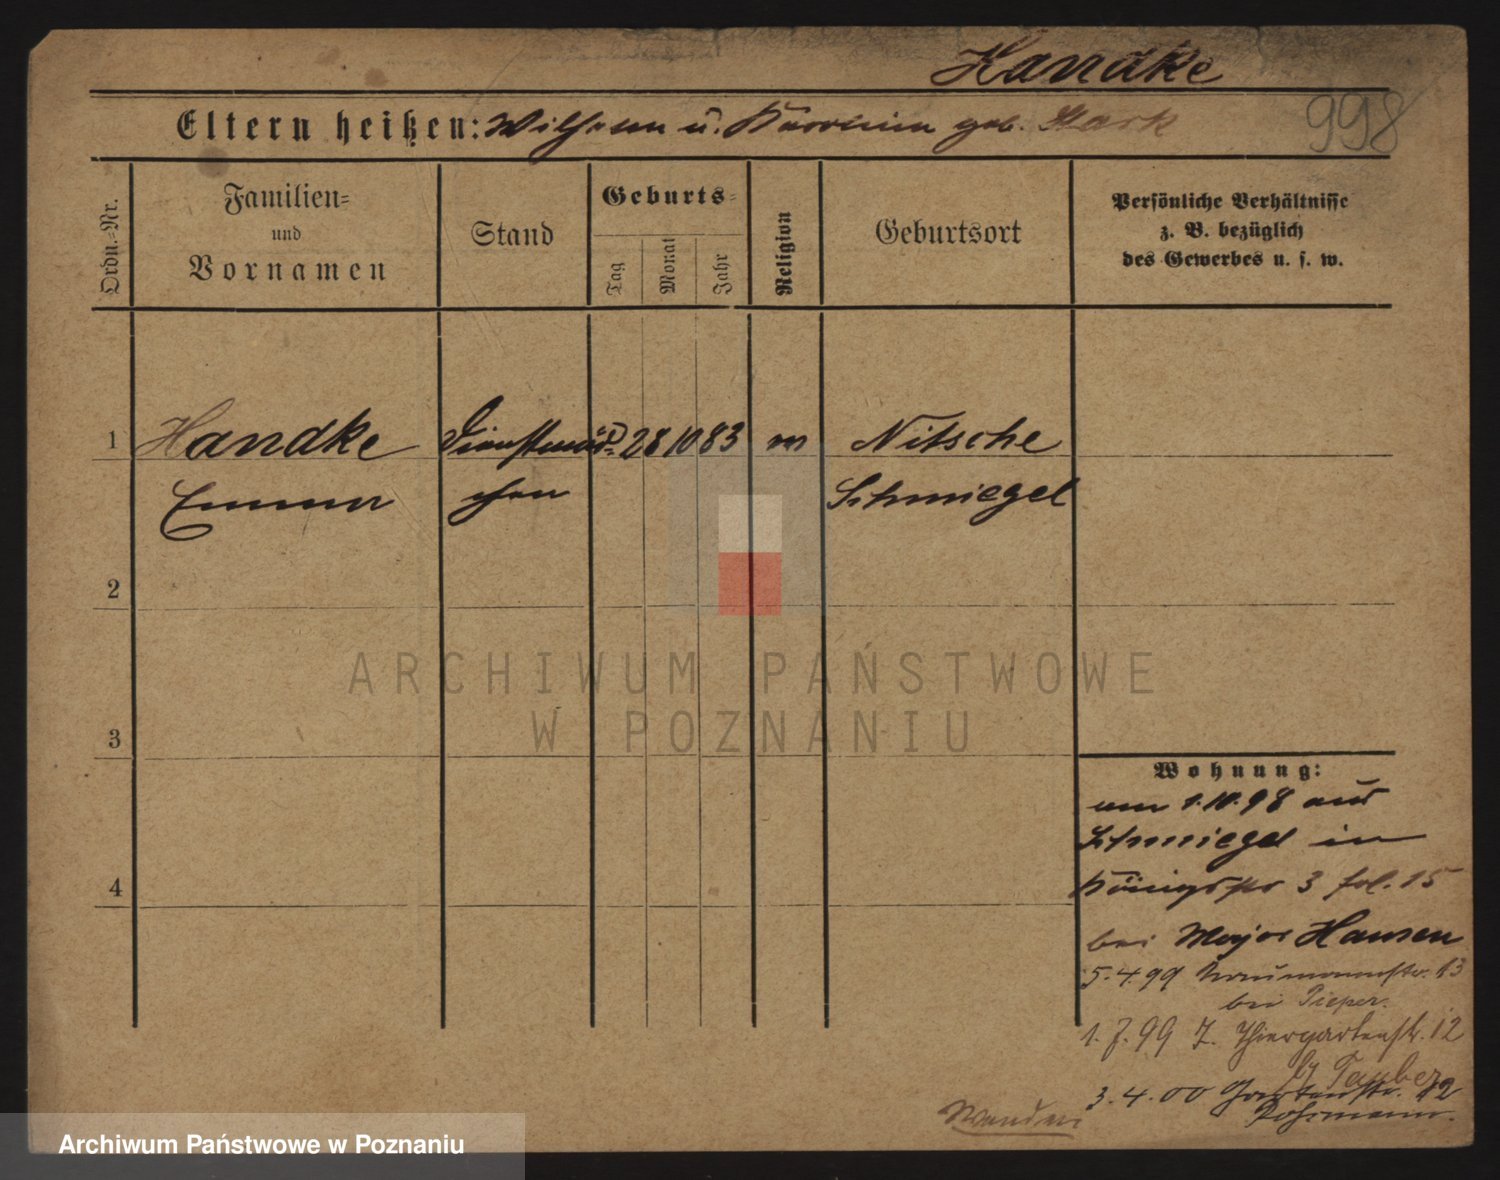 Handke
998
Eltern heißen: Wilhelm u. Karoline geb. Stark
Ordn.-Nr.
Familien-
und
Vornamen
Stand
Geburts-
Tag
Monat
Jahr
Religion
Geburtsort
Persönliche Verhältnisse
z. B. bezüglich
des Gewerbes u. s. w.
1 Handke Dienstmäd- 28 10 83 Nitsche
Emma chen Schmiegel
2
3
4
Wohnung:
am 1.10.98 aus
Schmiegel in
Königspl 3 fol. 15
bei Major Hansen
5.4.99 Naumannstr. 13
bei Pieper.
1.7.99 Thiergartenstr. 12
by Tauber
3.4.00 Gartenstr. 12
Rohrmann.
ARCHIWUM PAŃSTWOWE
W POZNANIU
Archiwum Państwowe w Poznaniu